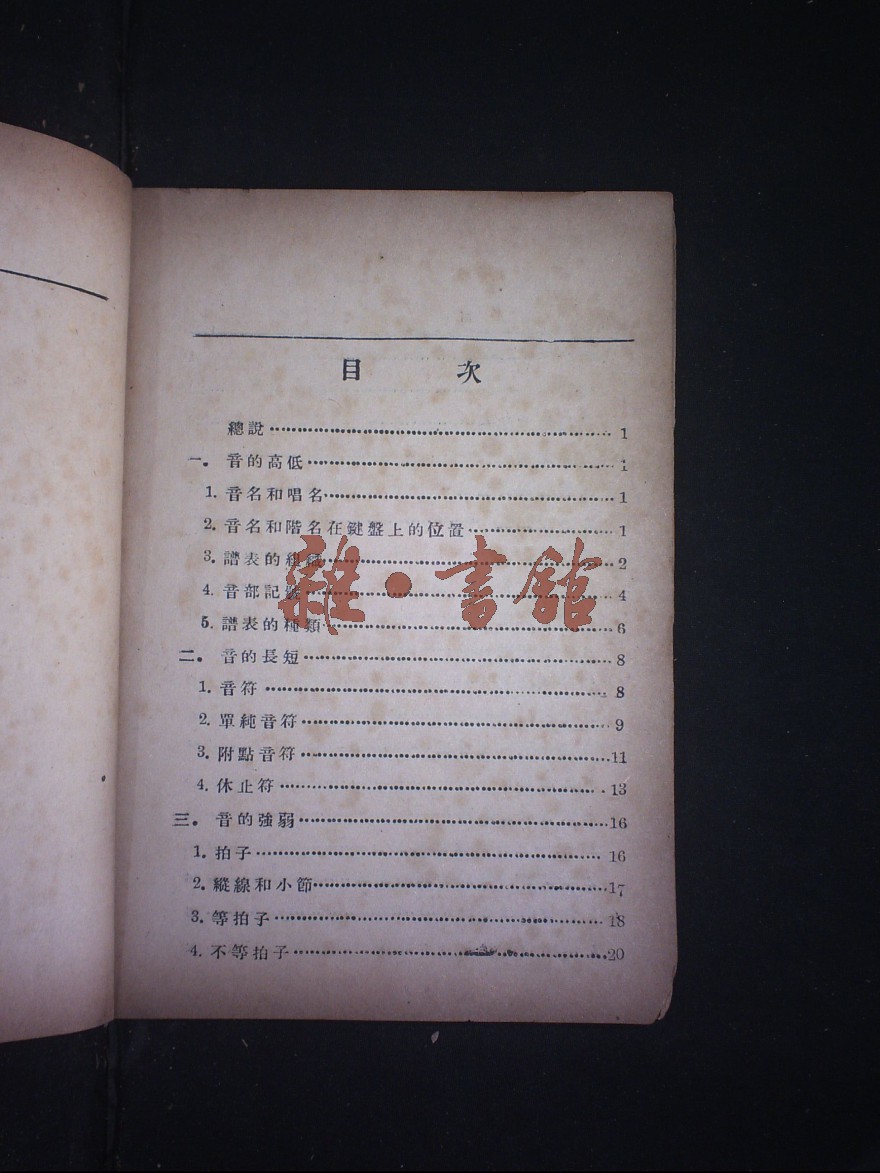 目 次
總說 1
一. 音的高低 1
1. 音名和唱名 1
2. 音名和階名在鍵盤上的位置 1
3. 譜表的組織 2
4. 音部記號 4
5. 譜表的種類 6
二. 音的長短 8
1. 音符 8
2. 單純音符 9
3. 附點音符 11
4. 休止符 13
三. 音的強弱 16
1. 拍子 16
2. 縱線和小節 17
3. 等拍子 18
4. 不等拍子 20
雜·書館